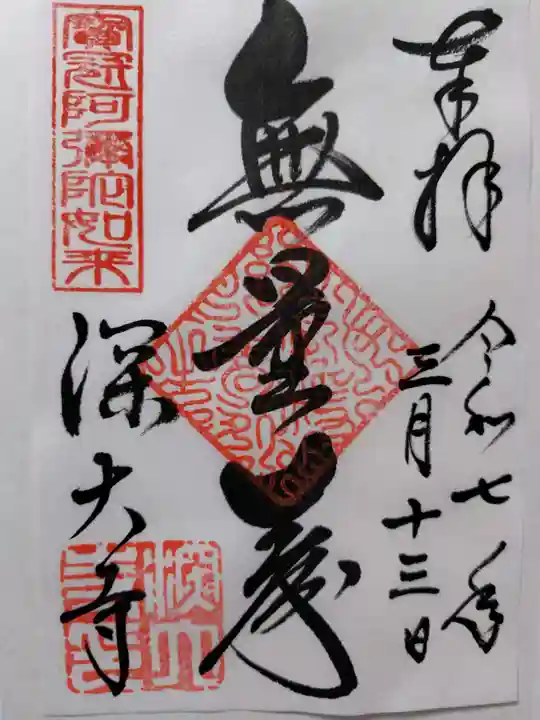 奉拝
令和七年
三月十三日
無量寿
寳冠阿彌陀如来
深大寺